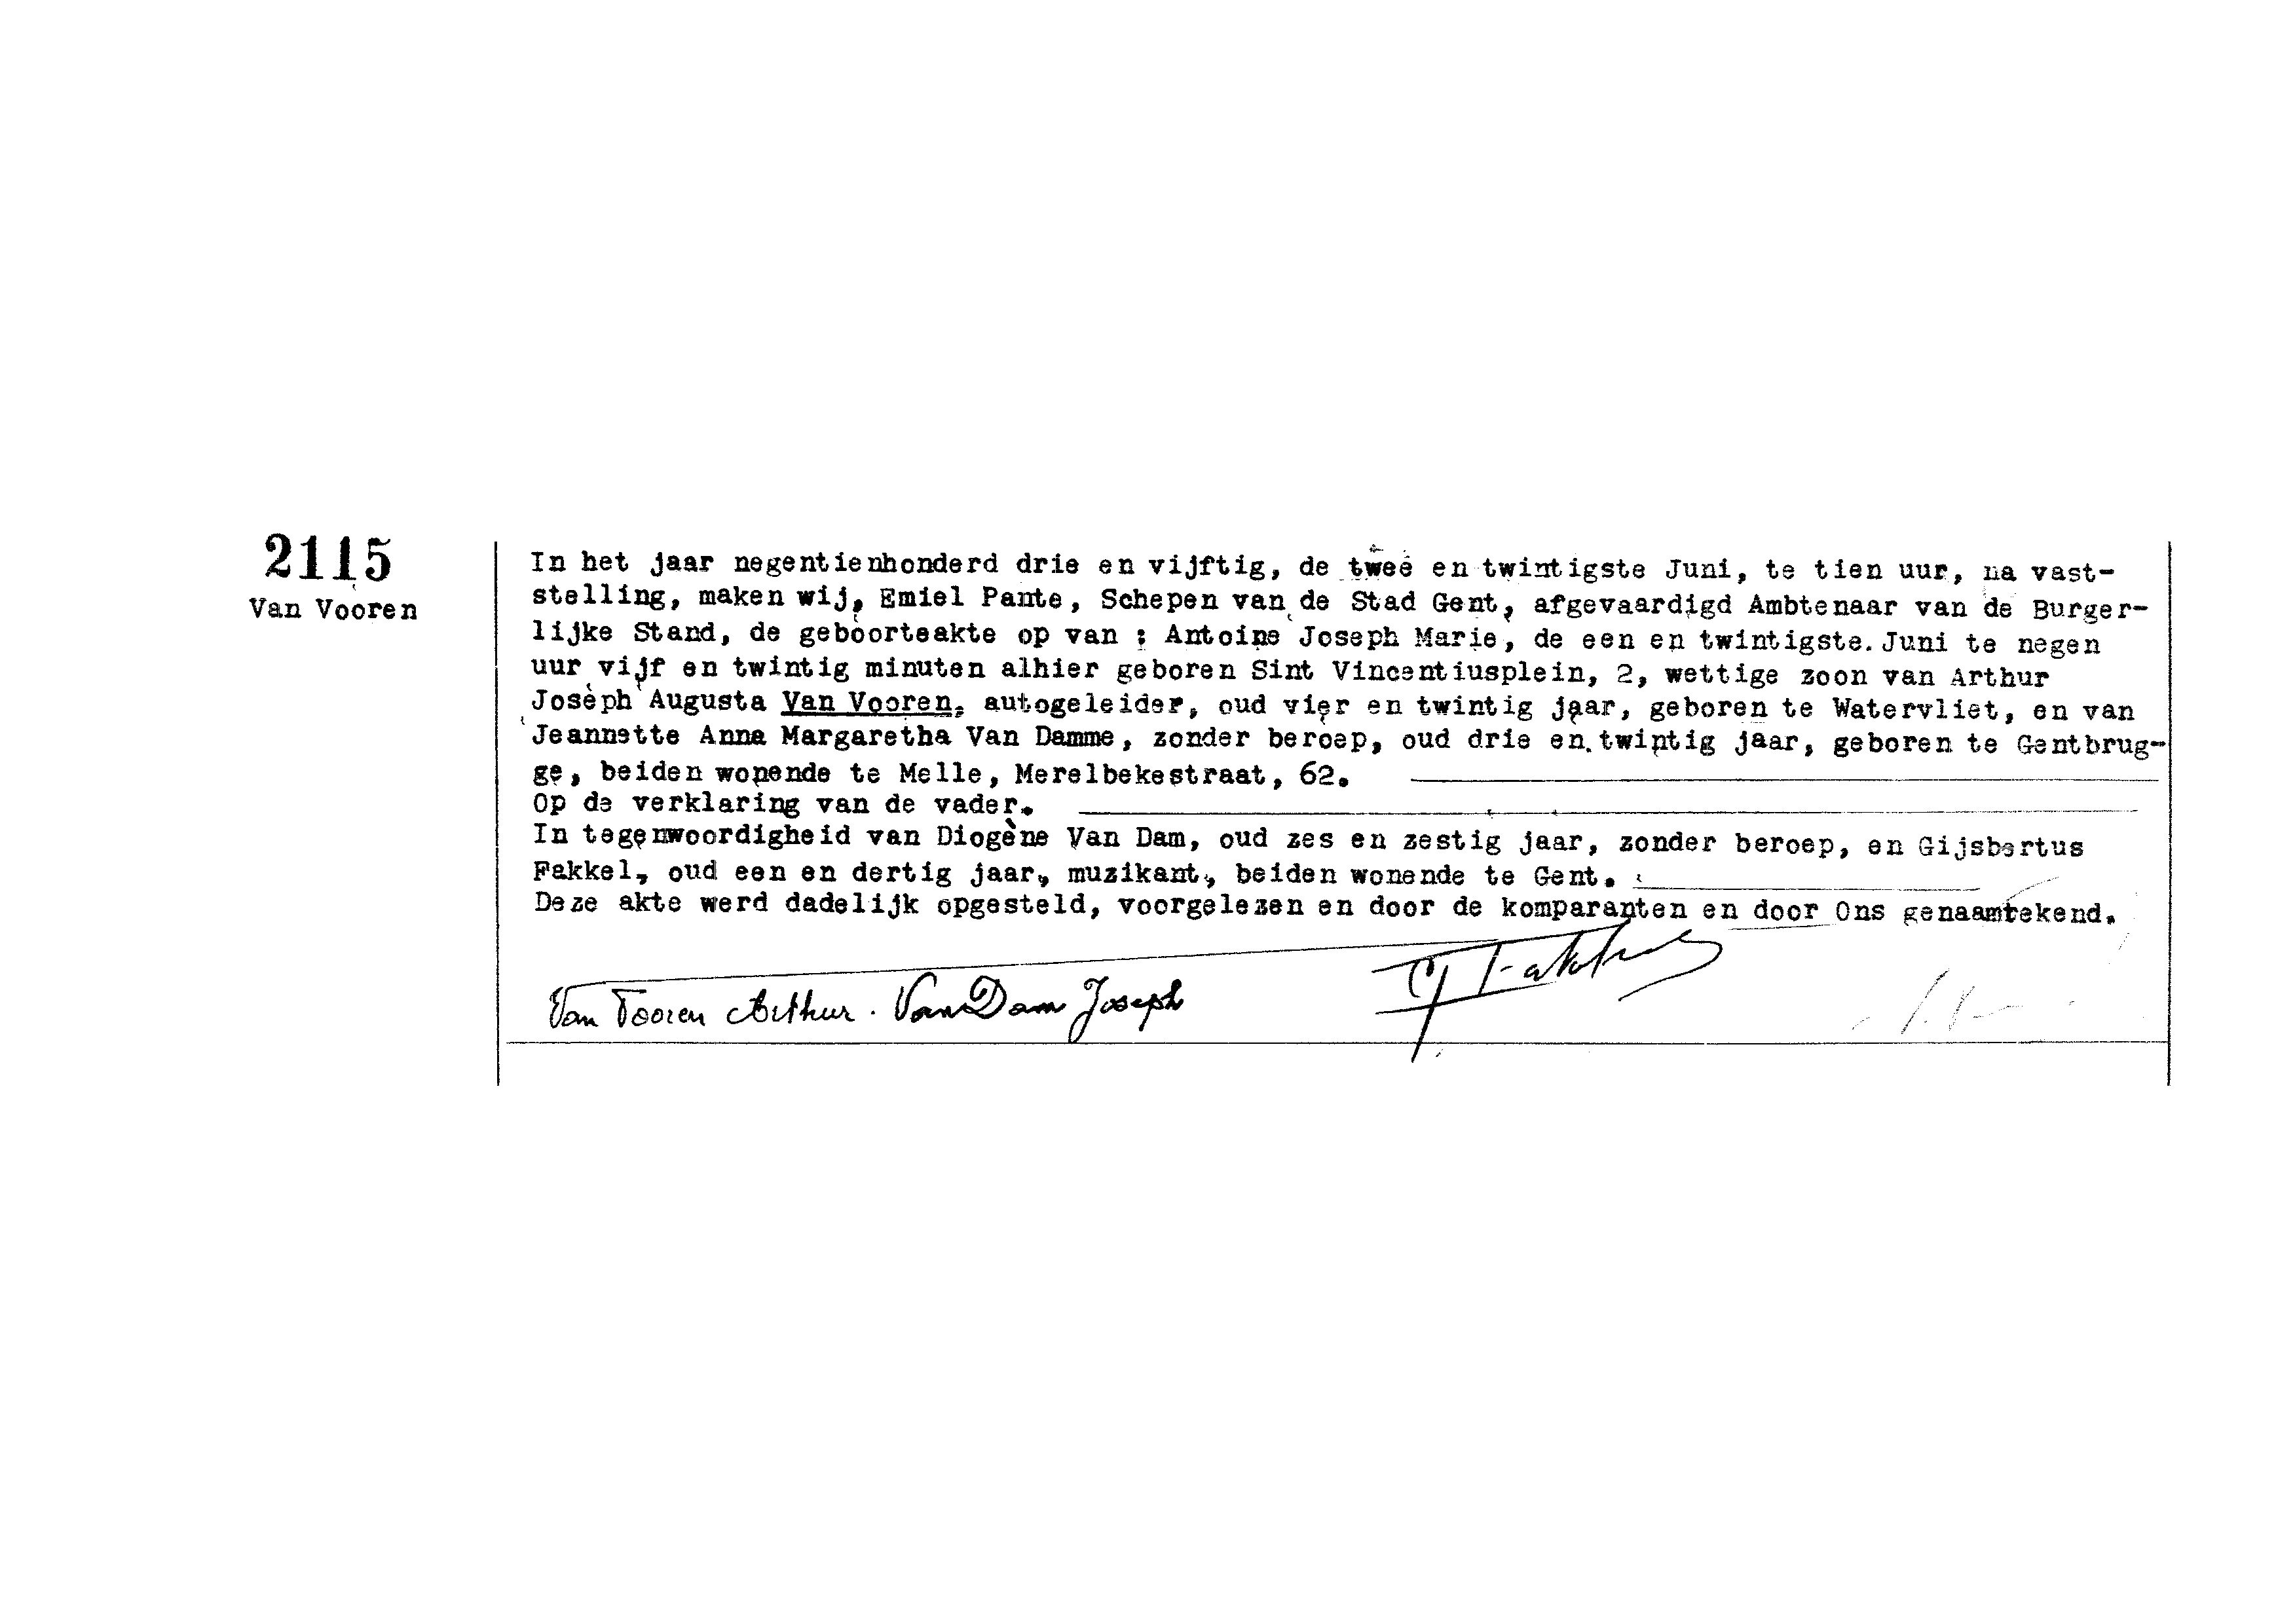 2115
Van Vooren
In het jaar negentienhonderd drie en vijftig, de twee en twintigste Juni, te tien uur, na vast-
stelling, maken wij, Emiel Pante, Schepen van de Stad Gent, afgevaardigd Ambtenaar van de Burger-
lijke Stand, de geboorteakte op van : Antoine Joseph Marie, de een en twintigste Juni te negen
uur vijf en twintig minuten alhier geboren Sint Vincentiusplein, 2, wettige zoon van Arthur
Joseph Augusta Van Vooren, autogeleider, oud vier en twintig jaar, geboren te Watervliet, en van
Jeannette Anna Margaretha Van Damme, zonder beroep, oud drie en twintig jaar, geboren te Gentbrug-
ge, beiden wonende te Melle, Merelbekestraat, 62.
Op de verklaring van de vader.
In tegenwoordigheid van Diogène Van Dam, oud zes en zestig jaar, zonder beroep, en Gijsbertus
Fakkel, oud een en dertig jaar, muzikant, beiden wonende te Gent.
Deze akte werd dadelijk opgesteld, voorgelezen en door de komparanten en door Ons genaamtekend.
Van Vooren Arthur. Van Dam Joseph G Fakkel